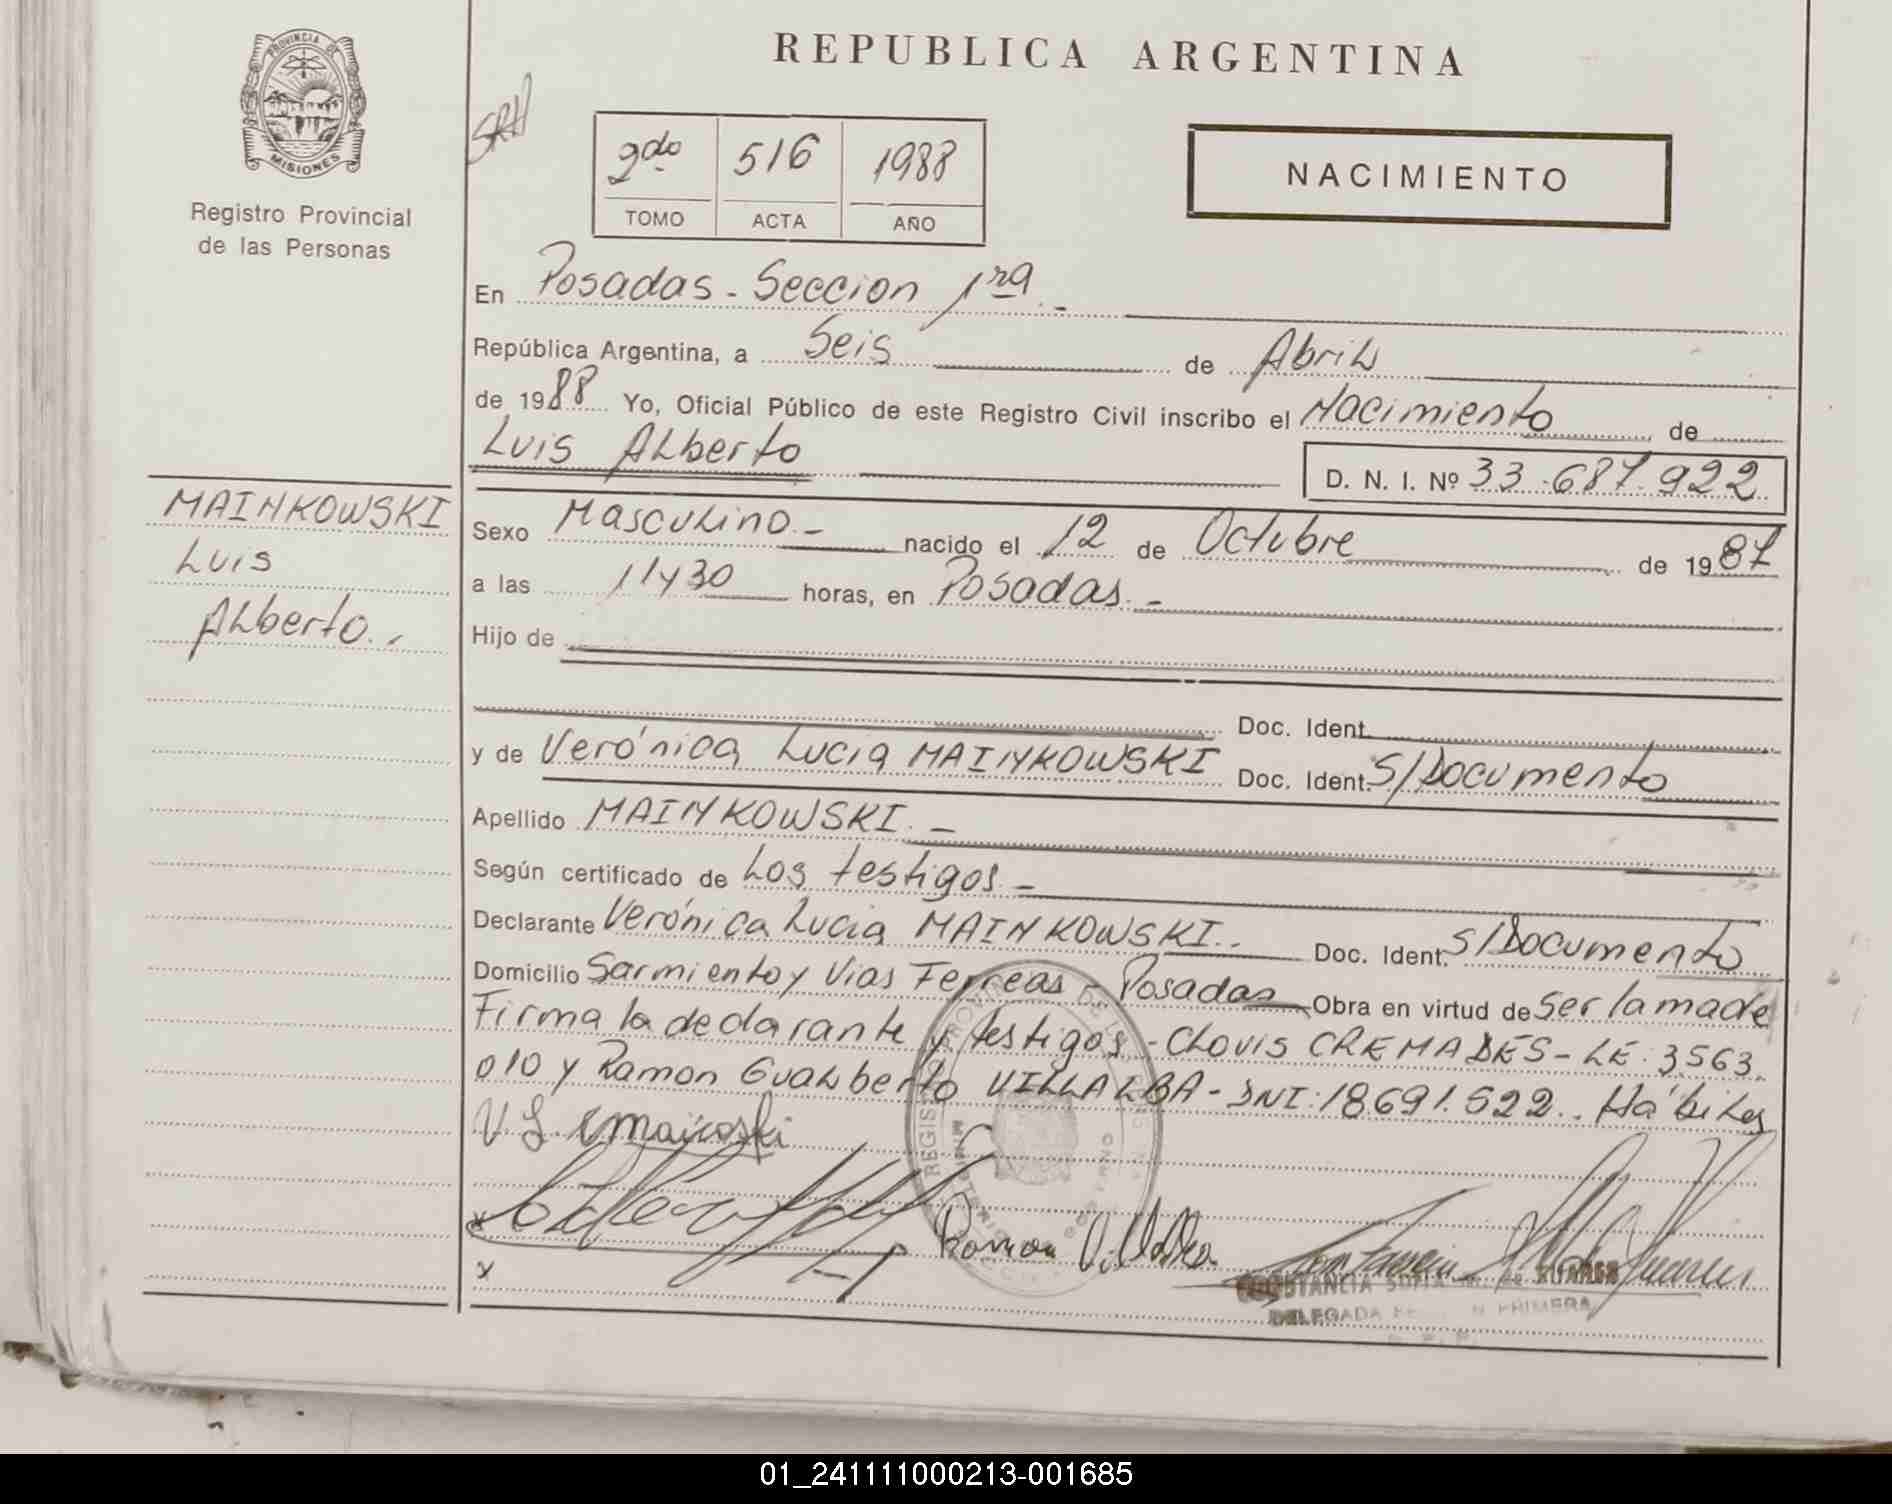 REPUBLICA ARGENTINA
PROVINCIA DE
MISIONES
Registro Provincial
de las Personas
SRH
2do 516 1988
TOMO ACTA AÑO
NACIMIENTO
En Posadas - Seccion 1ra. -
República Argentina, a Seis de Abril
de 1988 Yo, Oficial Público de este Registro Civil inscribo el Nacimiento de
Luis Alberto
D. N. I. Nº 33.687.922
MAINKOWSKI
Luis
Alberto. -
Sexo Masculino. - nacido el 12 de Octubre de 1987
a las 11 y 30 horas, en Posadas. -
Hijo de
Doc. Ident.
y de Verónica Lucia MAINKOWSKI Doc. Ident. S/Documento
Apellido MAINKOWSKI. -
Según certificado de Los testigos. -
Declarante Verónica Lucia MAINKOWSKI. - Doc. Ident. S/Documento
Domicilio Sarmiento y Vias Ferreas - Posadas Obra en virtud de Ser la madre
Firma la declarante y testigos - Clovis CREMADES - LE: 3563.
010 y Ramon Gualberto VILLALBA - DNI: 18.691.522. Hábiles
V. L.
Ramon Villalba
CONSTANCIA SUAREZ
DELEGADA PRIMERA
01_241111000213-001685